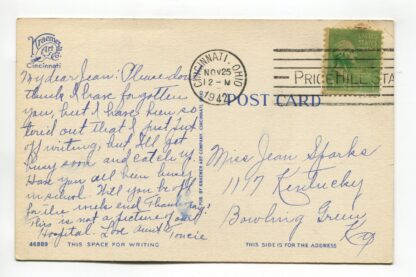 Kraemer
Art
Co.
Cincinnati
My dear Jean: Please don't
think I have forgotten
you, but I have been so
tired out that I just put
off writing, but I'll get
busy soon and catch up.
Have you all been busy
in school. Will you be off
for the week end Thanksgiving?
This is not a picture of our
Hospital. Love Aunt Toncie
CINCINNATI, OHIO
NOV 25
12 - M
1947
PRICE HILL STA
POST CARD
PUB. BY KRAEMER ART COMPANY, CINCINNATI,
Miss Jean Sparks
1147 Kentucky
Bowling Green,
Ky
46889 THIS SPACE FOR WRITING
THIS SIDE IS FOR THE ADDRESS